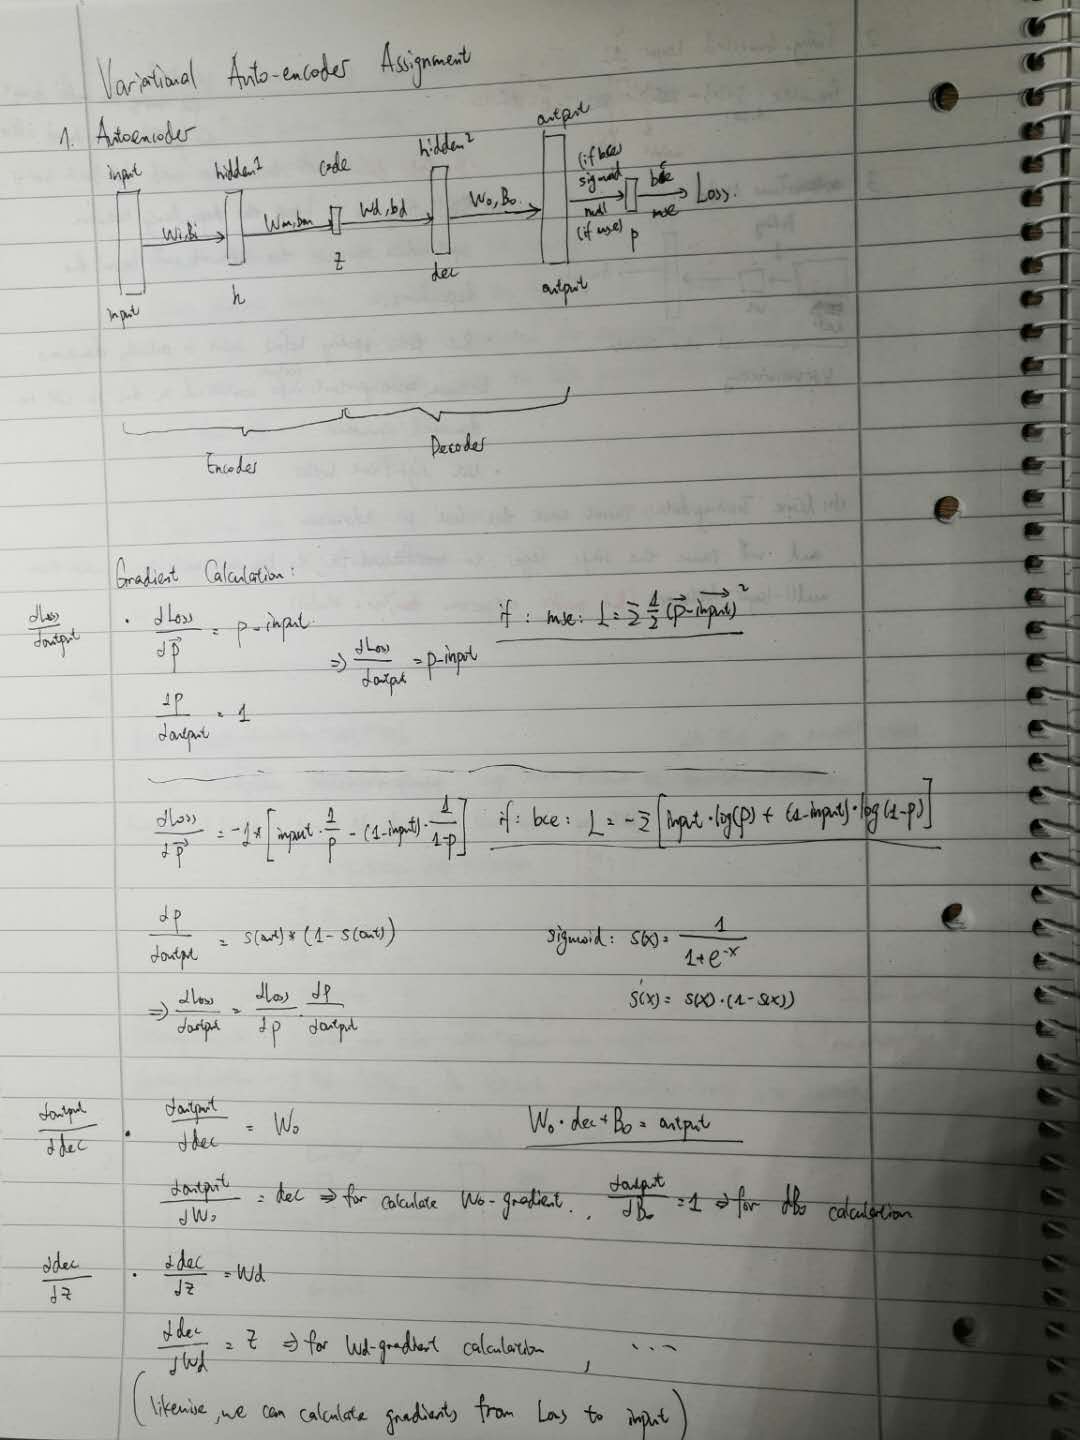 Variational Auto-encoder Assignment
1. Autoencoder
input hidden1 code hidden2 output
Wi,Bi Wm,bm Wd,bd Wo,Bo. (if bce) sigmoid null (if mse) bce mse Loss.
input h z dec output p
Encoder Decoder
Gradient Calculation:
dLoss/doutput · dLoss/dp⃗ = p-input. if: mse: L = Σ 1/2 (p⃗-input⃗)²
⇒ dLoss/doutput = p-input
dp/doutput = 1
dLoss/dp⃗ = -1*[input·1/p - (1-input)·1/(1-p)] if: bce: L = -Σ[input·log(p) + (1-input)·log(1-p)]
dp/doutput = s(out)*(1-s(out)) sigmoid: S(x) = 1/(1+e^-x)
⇒ dLoss/doutput = dLoss/dp · dp/doutput S'(x) = S(x)·(1-S(x))
doutput/ddec · doutput/ddec = Wo Wo·dec+Bo = output
doutput/dWo = dec ⇒ for calculate Wo-gradient., doutput/dBo = 1 ⇒ for dBo calculation
ddec/dz · ddec/dz = Wd
ddec/dWd = z ⇒ for Wd-gradient calculation , ....
(likewise, we can calculate gradients from Loss to input)